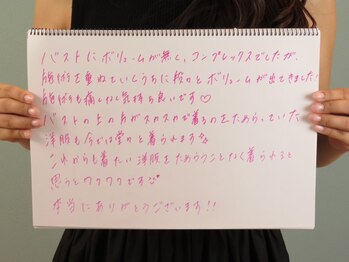 バストにボリュームが無く、コンプレックスでしたが、
施術を重ねていくうちに段々とボリュームが出てきました!
施術も痛くなく気持ち良いです♡
バストの上の方がスカスカで着るのをためらっていた
洋服も今では堂々と着られます
これからも着たい洋服をためらうことなく着られると
思うとワクワクです
本当にありがとうございます!!